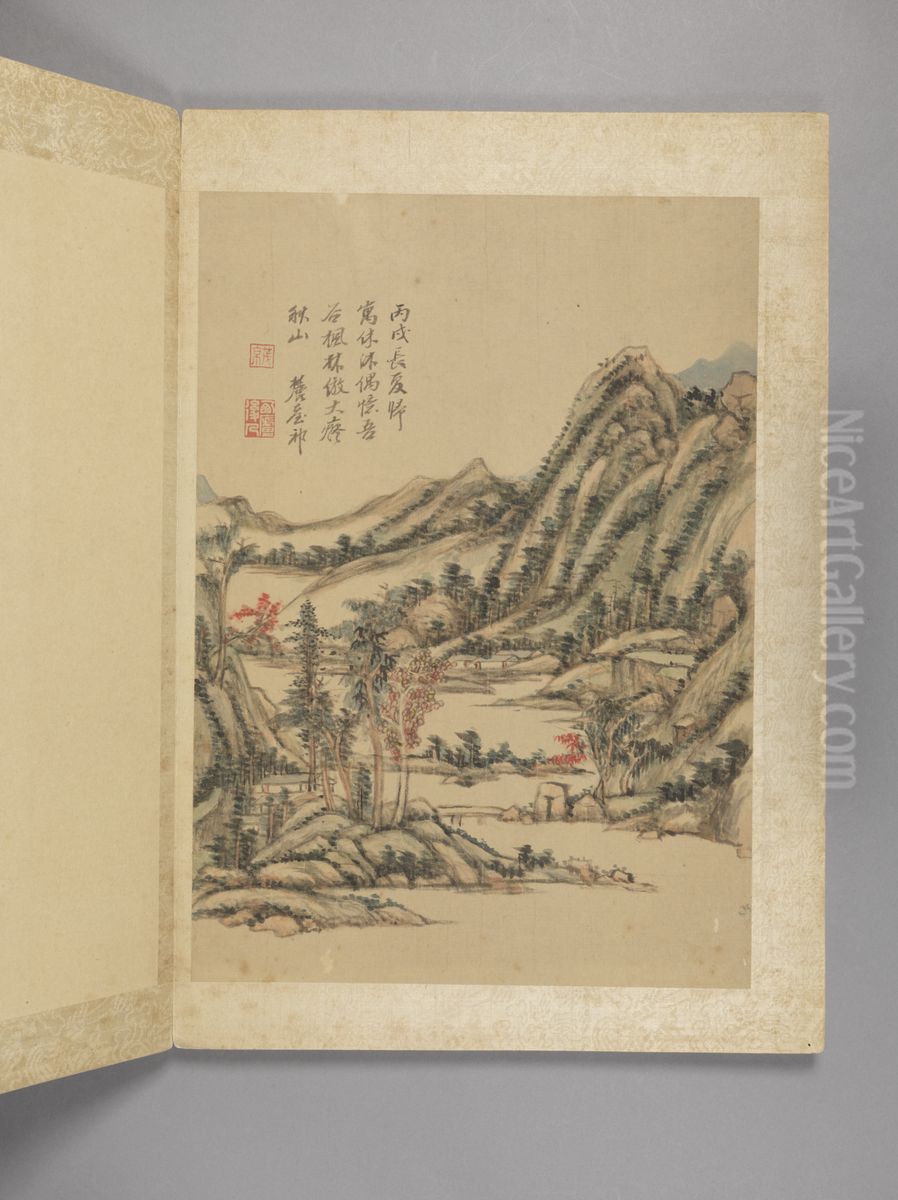 丙戌長夏歸
寓休沐偶憶吾
谷楓林倣大癡
秋山
麓臺祁
NiceArtGallery.com